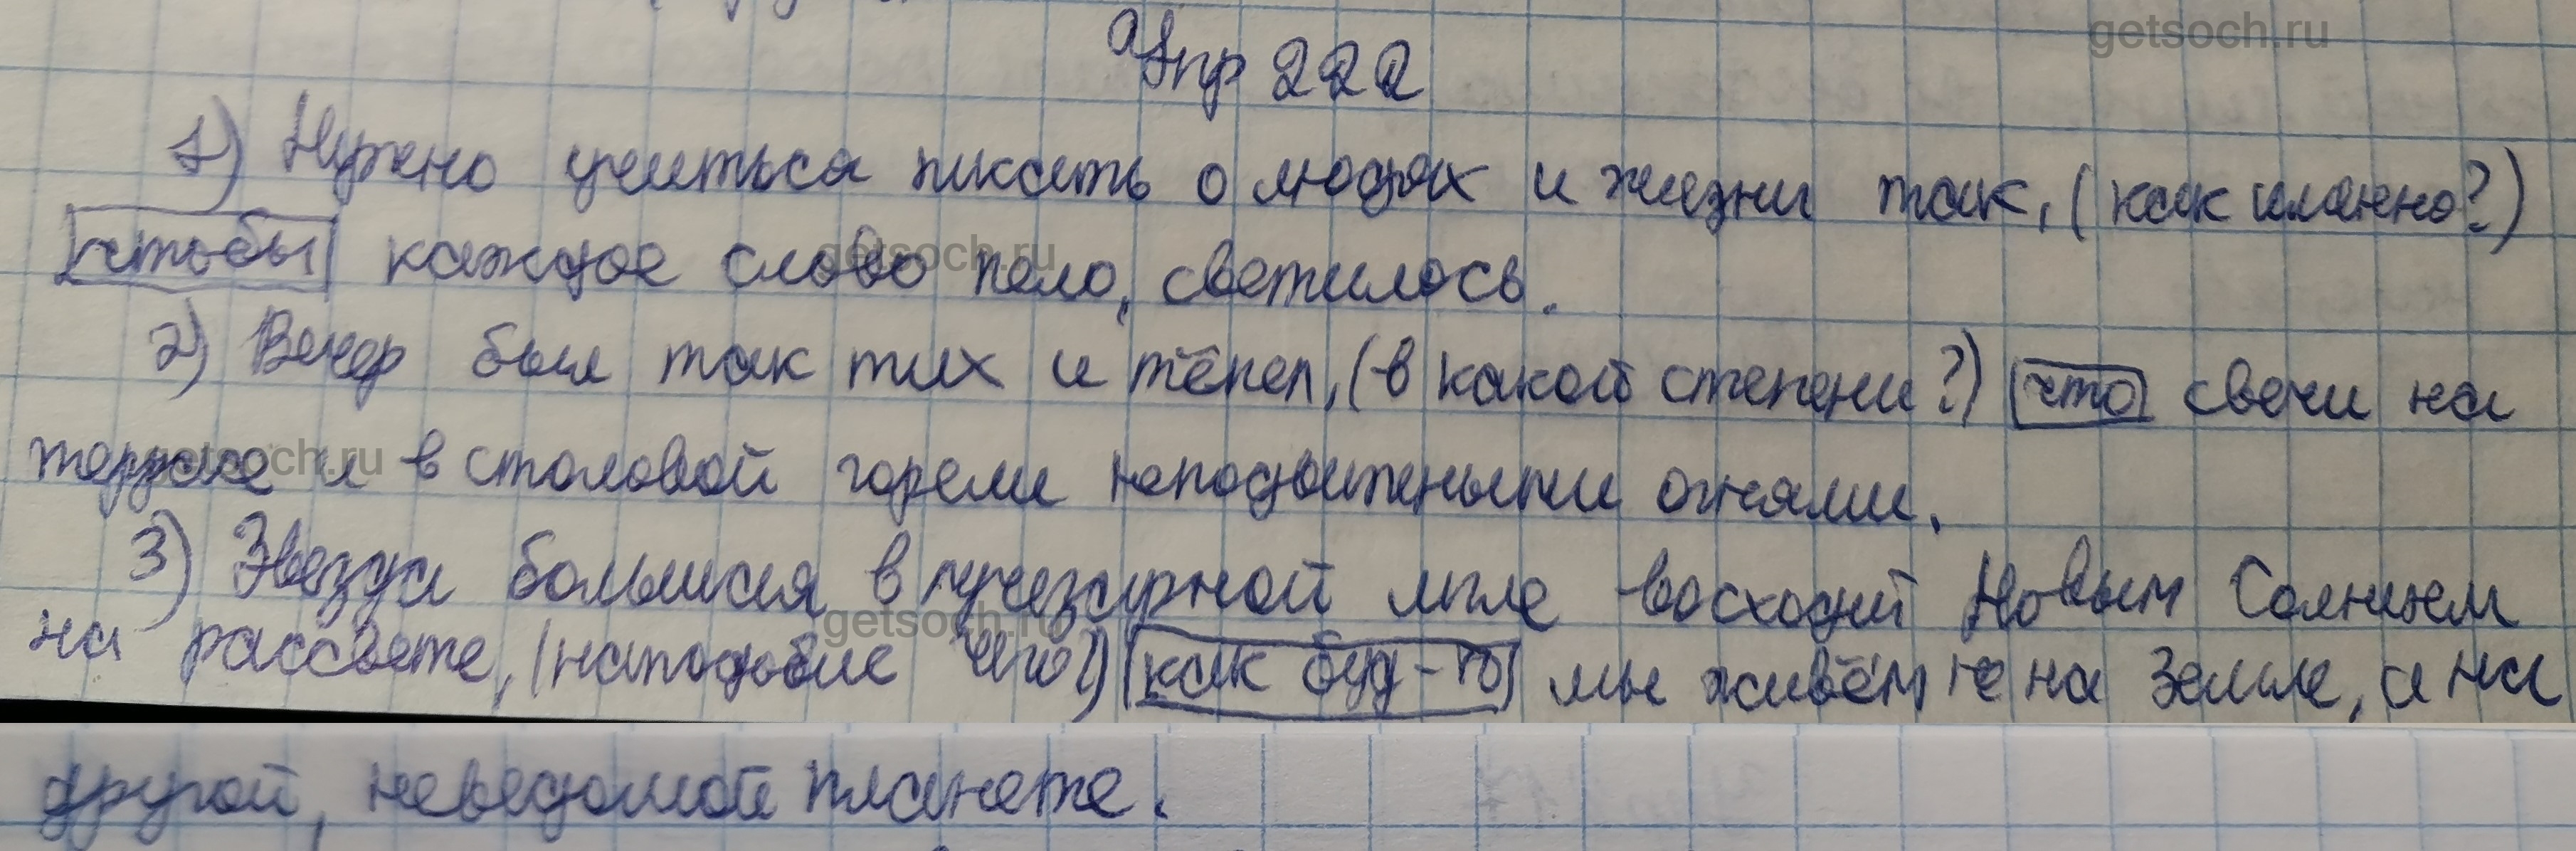 Упр 222
getsoch.ru
1) Нужно учиться писать о людях и жизни так, (как именно?)
чтобы каждое слово пело, светилось.
getsoch.ru
2) Вечер был так тих и тёпел, (в какой степени?) что свечи на
террасе и в столовой горели неподвижными огнями.
getsoch.ru
3) Звезда большая в лучезарной мгле восходит Новым Солнцем
getsoch.ru
на рассвете, (наподобие чего?) как буд-то мы живём не на Земле, а на
другой, неведомой планете.